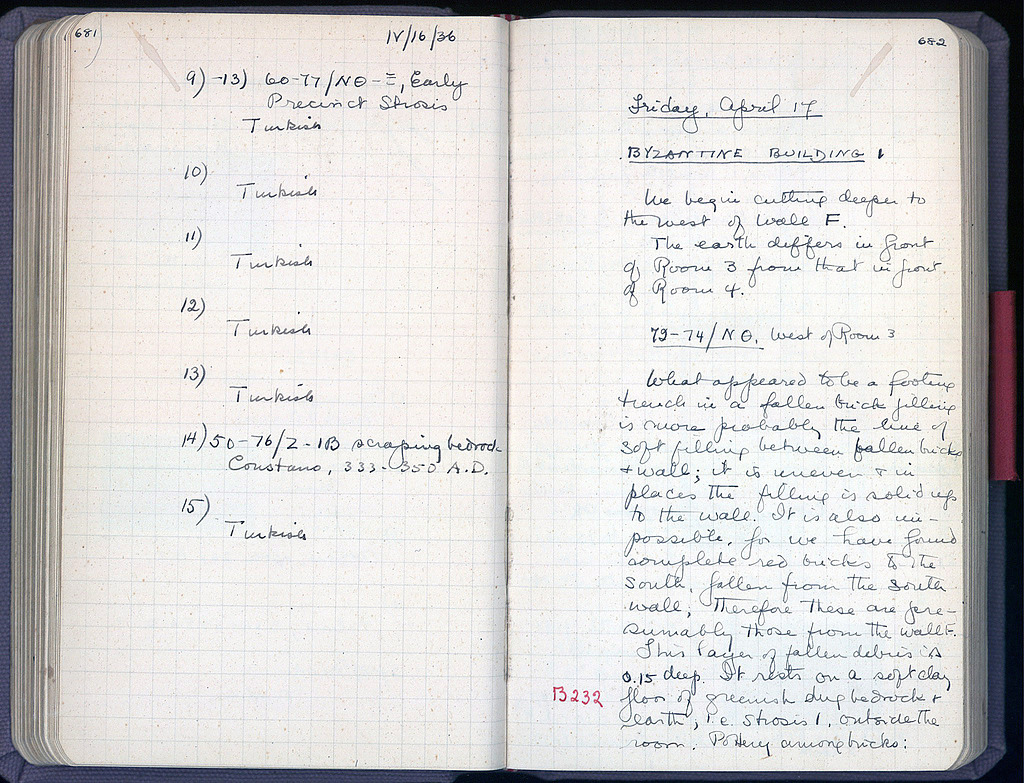 681
IV/16/36
9) -13) 60-77/ΝΘ-Ξ, Early
Precinct Strosis
Turkish
10)
Turkish
11)
Turkish
12)
Turkish
13)
Turkish
14) 50-76/Z-IB scraping bedrock
Constans, 333-350 A.D.
15)
Turkish
682
Friday, April 17
BYZANTINE BUILDING 1
We begin cutting deeper to
the west of Wall F.
The earth differs in front
of Room 3 from that in front
of Room 4.
72-74/ΝΘ, West of Room 3
What appeared to be a footing
trench in a fallen brick filling
is more probably the line of
soft filling between fallen bricks
+ wall; it is uneven + in
places the filling is solid up
to the wall. It is also im-
possible, for we have found
complete red bricks to the
south, fallen from the south
wall; therefore these are pre-
sumably those from the wall F.
This layer of fallen debris is
0.15 deep. It rests on a soft clay
B232
floor of greenish dug bedrock +
earth, i.e. Strosis 1, outside the
room. Pottery among bricks: